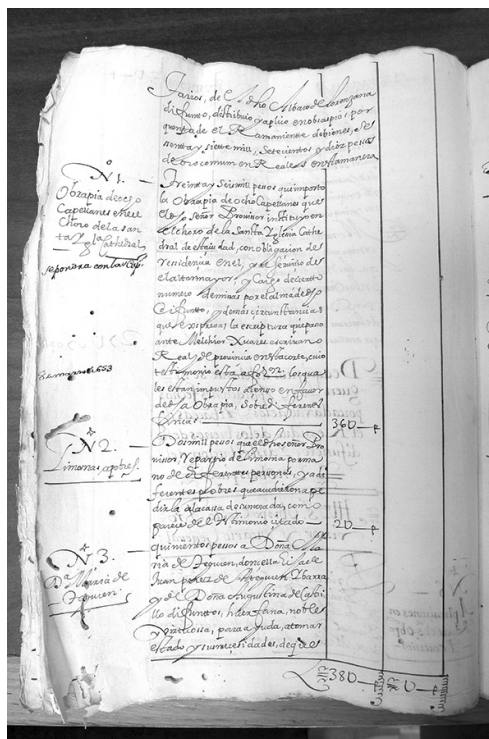 tarios, de el dho Albaro de Lorenzana
difunto, distribuio y aplico en obras pias por
quenta de el Remaniente de bienes, se
senta y siete mill, Setecientos y diez pesos
de oro comun en Reales en esta manera
N 1.
Obra pia de ocho
Capellanes en el
Choro de la san
ta Yglesia Cathedral
Treinta y seis mil pesos que importo
la Obra pia de ocho Capellanes que
el dho señor Provisor instituyo en
el choro de la Santa Yglesia Cathe
dral de esta ciudad, con obligacion de
residencia en el, y de servicio de
el altar mayor, y cargo de cierto
numero de misas por el alma de el
Difunto, y demas circunstancias
que se expresan la escriptura que paso
ante Melchior Xuarez escrivano
Real, y de provincia en esta corte, cuio
testimonio esta a los qua
les estan impuestos a censo en favor
de dha Obra pia, sobre diferentes
fincas
36U p
N 2.
Limosnas a pobres
Dos mil pesos que el dho señor Pro
visor, Repartio de limosna por ma
no de diferentes personas, y a di
ferentes pobres que acudieron a pe
dirla a la casa de su morada, como
parece de el testimonio citado
2U p
N 3.
Da Maria de
Seguien.
quinientos pesos a Doña Ma
ria de donsella hija de
Juan perez de Ybarra
y de Doña Augustina de Casti
llo difuntos, huerfana, noble
y virtuosa, para ayuda, a tomar
estado y sus necesidades, de que se
38U p